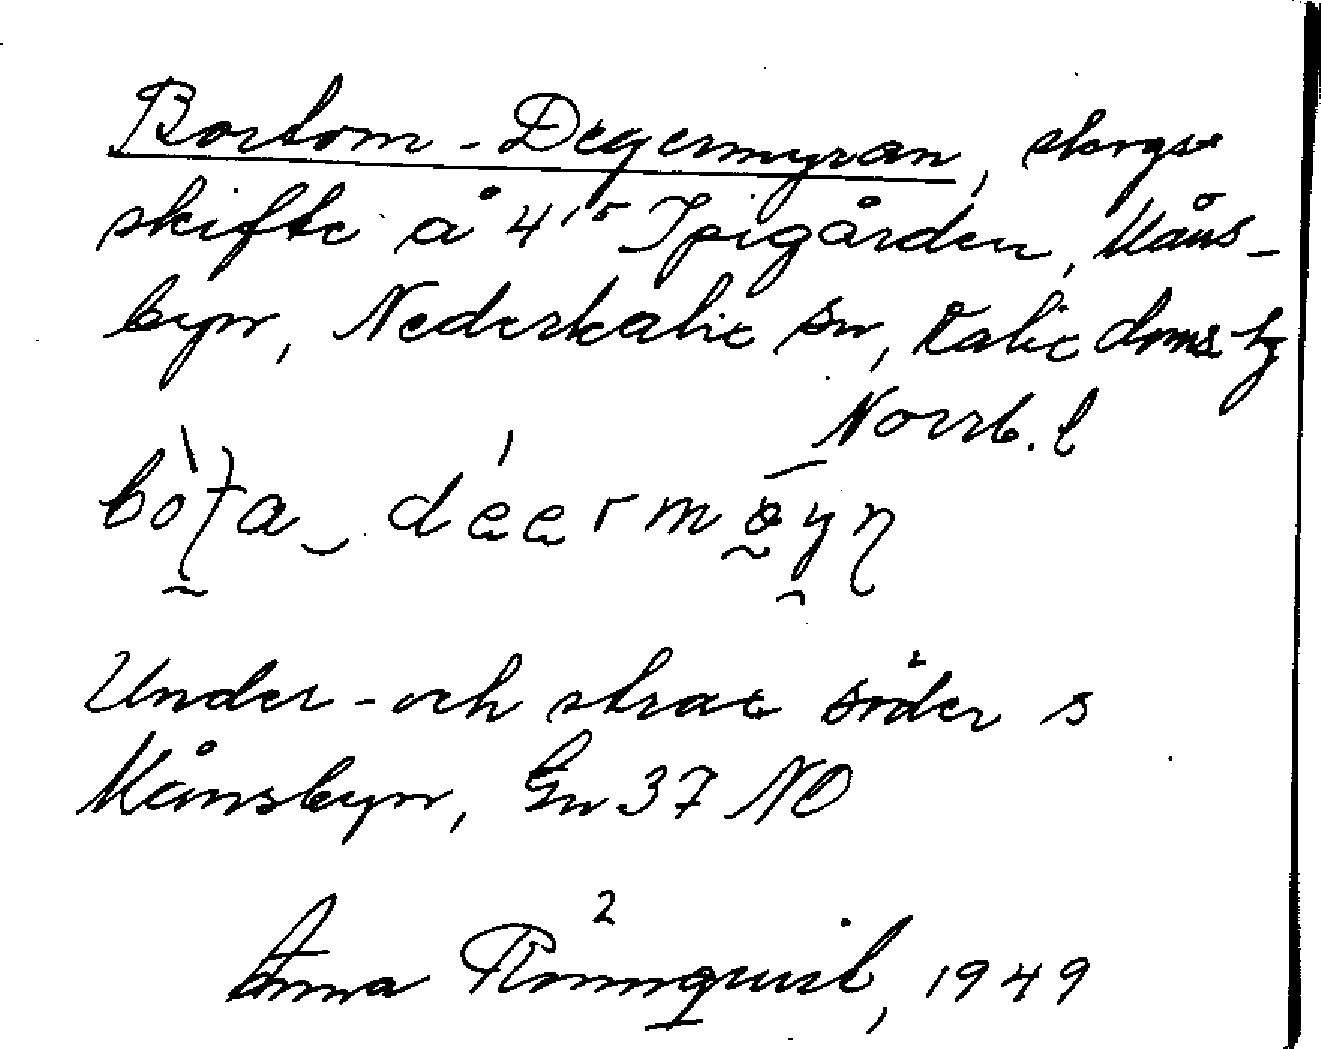 Bortom-Degermyran, skogs-
skifte å 4:5 Ipigården, Måns-
byn, Nederkalix sn, Kalix doms-hg
Norrb. l
Under- och strax söder s
Månsbyn, Gn 37 NO
2
Anna Rönnquist, 1949